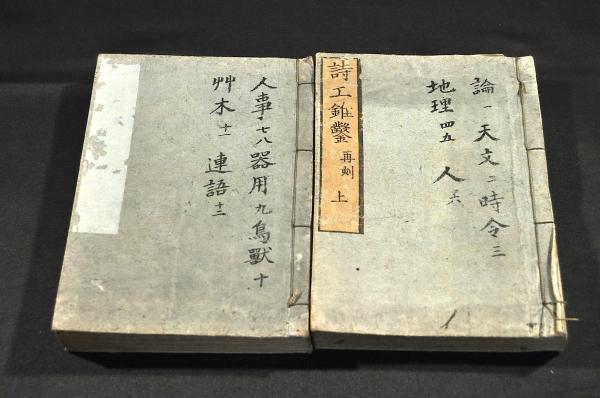 論一天文二時令三
地理四五人六
詩工錐鑿再刻上
人事七八器用九鳥獸十
艸木十一連語十二